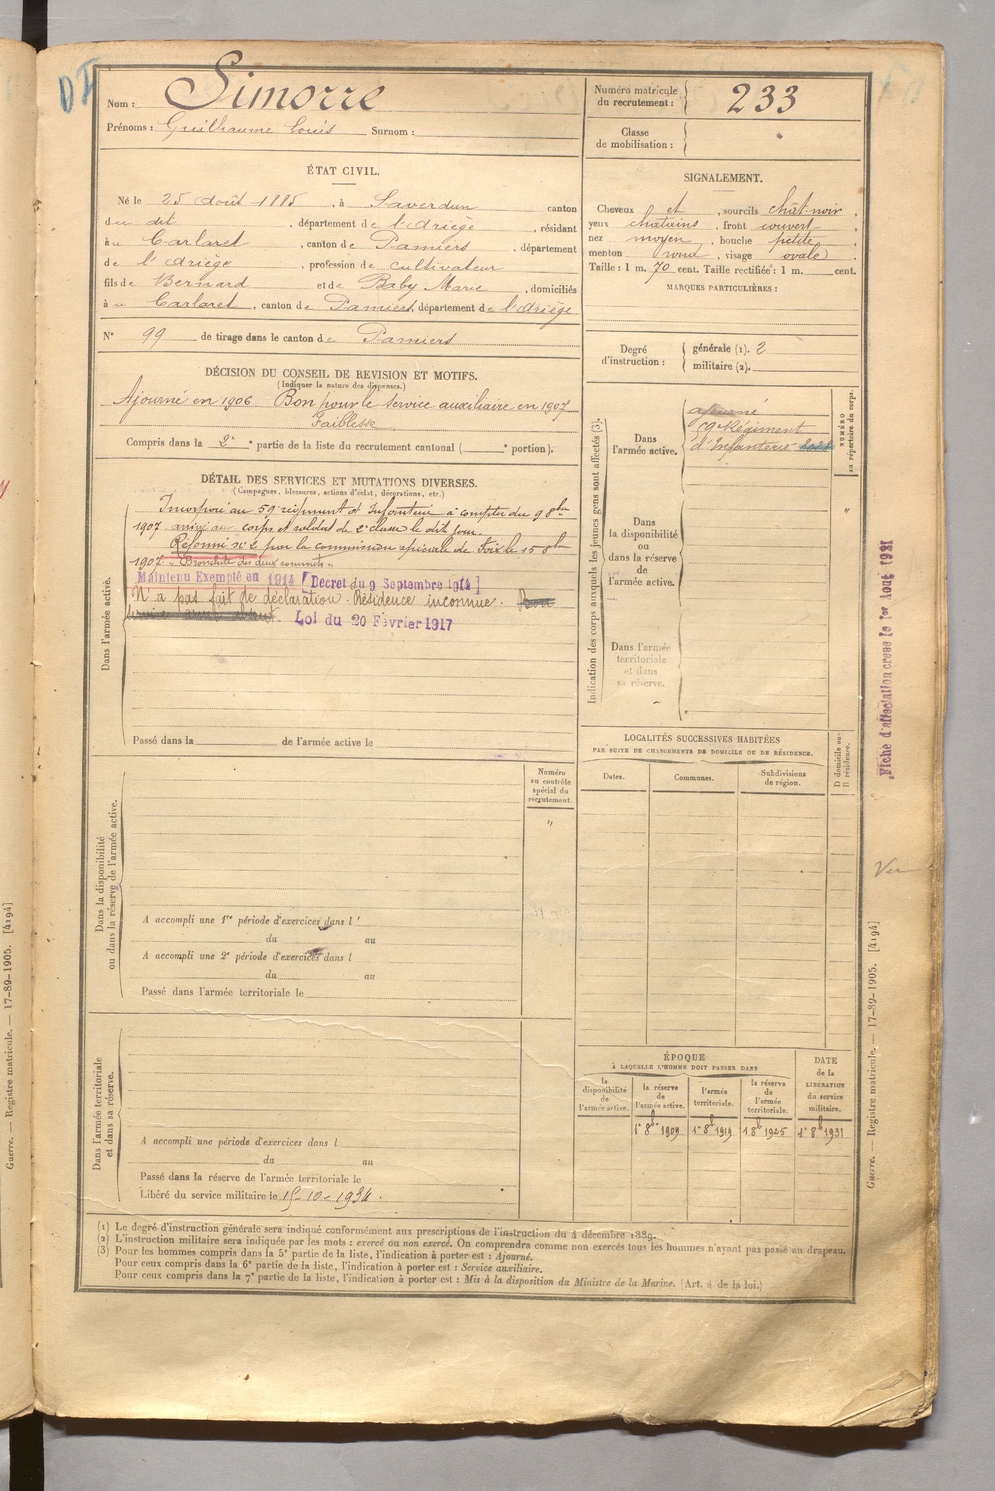 DI
Nom : Simorre
Prénoms : Guilhaume Louis Surnom :
Numéro matricule du recrutement : 233
Classe de mobilisation :
ÉTAT CIVIL.
Né le 25 Août 1885, à Saverdun canton
du dit, département de l'Ariège, résidant
à u Carlaret, canton de Pamiers, département
de l'Ariège, profession de cultivateur
fils de Bernard et de Baby Marie, domiciliés
à u Carlaret, canton de Pamiers, département de l'Ariège
N° 99 de tirage dans le canton de Pamiers
SIGNALEMENT.
Cheveux et, sourcils chât-noir,
yeux chatains, front couvert,
nez moyen, bouche petite,
menton rond, visage ovale
Taille : 1 m. 70 cent. Taille rectifiée : 1 m. cent.
MARQUES PARTICULIÈRES :
Degré d'instruction : générale (1). 2
militaire (2).
DÉCISION DU CONSEIL DE REVISION ET MOTIFS.
(Indiquer la nature des dispenses.)
Ajourné en 1906 Bon pour le service auxiliaire en 1907
Faiblesse
Compris dans la 2e partie de la liste du recrutement cantonal ( e portion).
Indication des corps auxquels les jeunes gens sont affectés (3).
NUMÉRO au répertoire du corps.
Dans l'armée active.
ajourné
59e Régiment
d'Infanterie
Dans la disponibilité ou dans la réserve de l'armée active.
"
Dans l'armée territoriale et dans sa réserve.
DÉTAIL DES SERVICES ET MUTATIONS DIVERSES.
(Campagnes, blessures, actions d'éclat, décorations, etc.)
Dans l'armée active.
Incorporé au 59e régiment d'Infanterie à compter du 9 8bre
1907 arrivé au corps et soldat de 2e classe le dit jour.
Réformé n° 2 par la commission spéciale de Foix le 15 8bre
1907 "Bronchite des deux sommets"
Maintenu Exempté en 1914 [Décret du 9 Septembre 1914]
N'a pas fait de déclaration. Résidence inconnue. Bon
service armé absent. Loi du 20 Février 1917
Passé dans la de l'armée active le
Fiche d'affectation créée le 1er Août 1921
LOCALITÉS SUCCESSIVES HABITÉES
PAR SUITE DE CHANGEMENTS DE DOMICILE OU DE RÉSIDENCE.
Dates. Communes. Subdivisions de région. D domicile ou R résidence.
Dans la disponibilité ou dans la réserve de l'armée active.
Numéro au contrôle spécial du recrutement.
"
A accompli une 1re période d'exercices dans l'
du au
A accompli une 2e période d'exercices dans l
du au
Passé dans l'armée territoriale le
Dans l'armée territoriale et dans sa réserve.
A accompli une période d'exercices dans l
du au
Passé dans la réserve de l'armée territoriale le
Libéré du service militaire le 15-10-1934.
ÉPOQUE
À LAQUELLE L'HOMME DOIT PASSER DANS
la disponibilité de l'armée active.
la réserve de l'armée active.
l'armée territoriale.
la réserve de l'armée territoriale.
DATE de la LIBÉRATION du service militaire.
1er 8bre 1909 1er 8b 1919 1 8b 1925 1er 8b 1931
(1) Le degré d'instruction générale sera indiqué conformément aux prescriptions de l'instruction du 4 décembre 1889.
(2) L'instruction militaire sera indiquée par les mots : exercé ou non exercé. On comprendra comme non exercés tous les hommes n'ayant pas passé au drapeau.
(3) Pour les hommes compris dans la 5e partie de la liste, l'indication à porter est : Ajourné.
Pour ceux compris dans la 6e partie de la liste, l'indication à porter est : Service auxiliaire.
Pour ceux compris dans la 7e partie de la liste, l'indication à porter est : Mis à la disposition du Ministre de la Marine. (Art. 4 de la loi.)
Guerre. — Registre matricule. — 17-89-1905. [4194]
Guerre. — Registre matricule. — 17-89-1905. [4194]